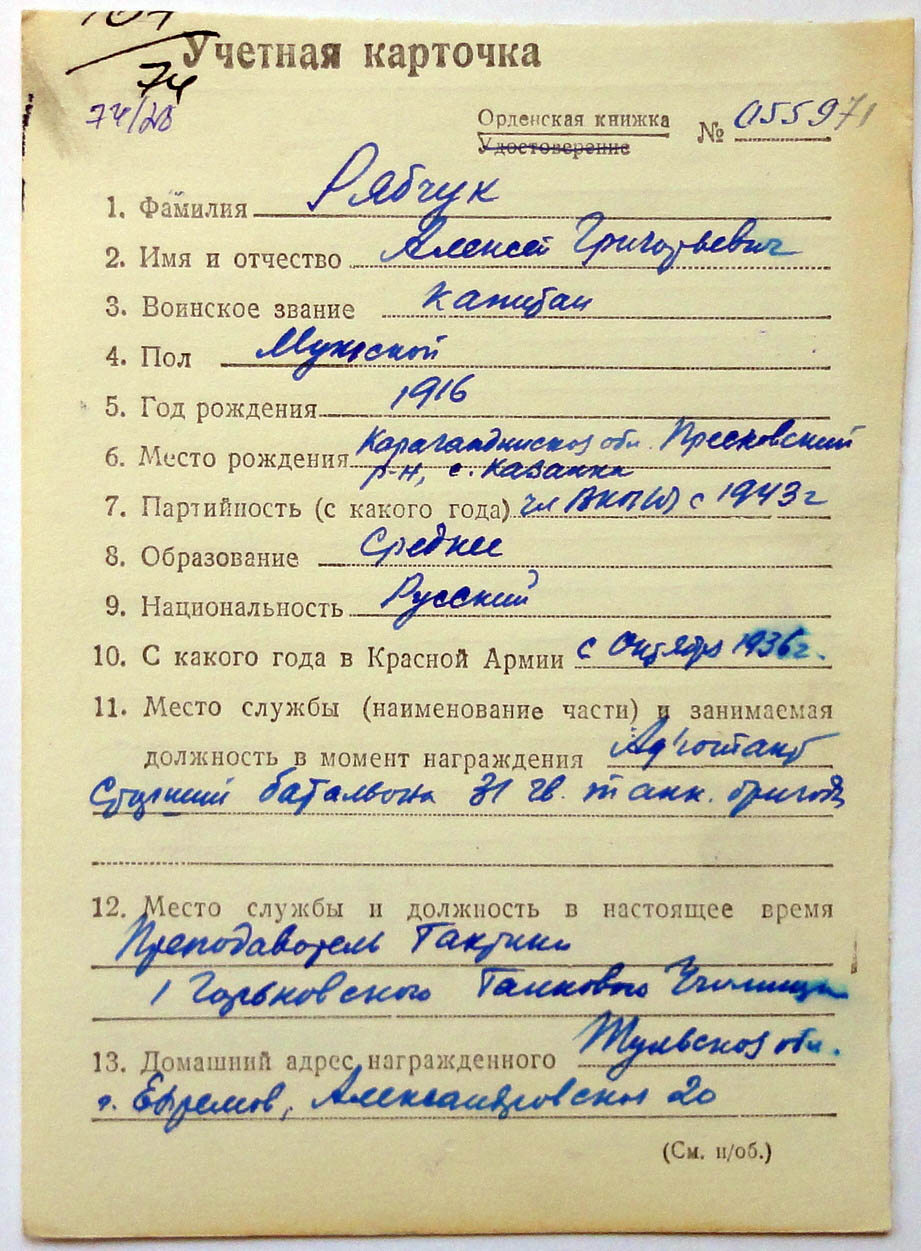 74
Учетная карточка
74/28
Орденская книжка
Удостоверение
№ 055971
1. Фамилия Рябчук
2. Имя и отчество Алексей Григорьевич
3. Воинское звание капитан
4. Пол Мужской
5. Год рождения 1916
6. Место рождения Карагандинской обл. Пресновский
р-н, с. Казанка
7. Партийность (с какого года) чл ВКП(б) с 1943 г
8. Образование Среднее
9. Национальность Русский
10. С какого года в Красной Армии с Октября 1936 г.
11. Место службы (наименование части) и занимаемая
должность в момент награждения Адъютант
Старший батальона 31 гв. танк. бригады
12. Место службы и должность в настоящее время
Преподаватель Тактики
1 Горьковского Танкового Училища
13. Домашний адрес награжденного Тульской обл.
г. Ефремов, Александровская 20
(См. н/об.)